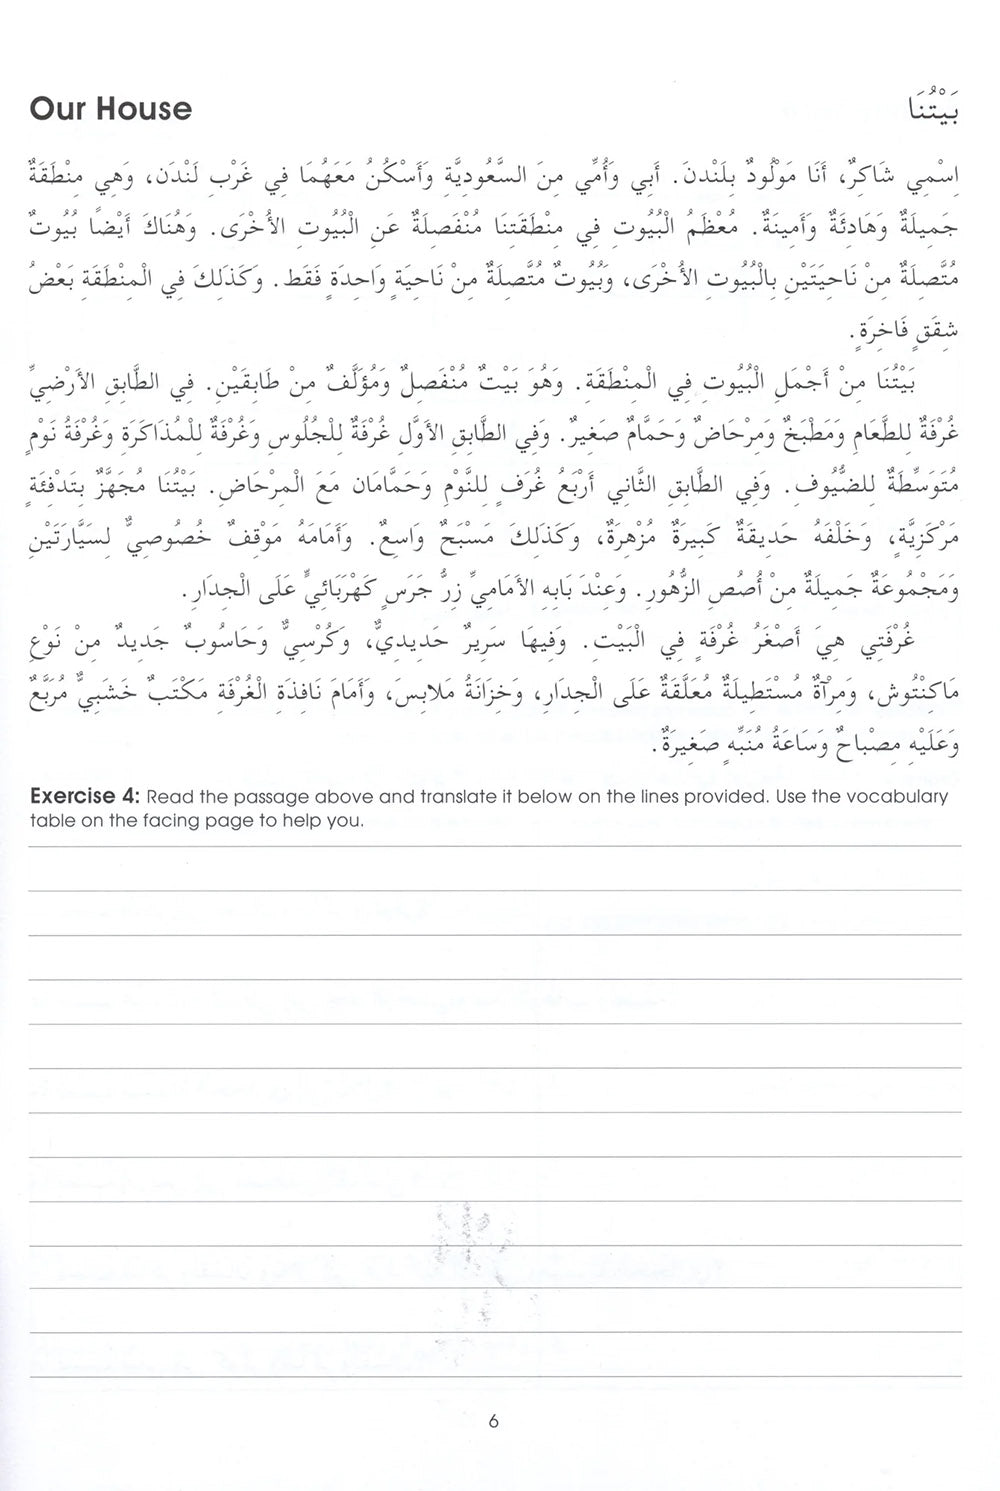 Our House
بَيْتُنَا
اِسْمِي شَاكِرٌ، أَنَا مَوْلُودٌ بِلَندنَ. أَبِي وَأُمِّي مِنَ السَّعُودِيَّةِ وَأَسْكُنُ مَعَهُمَا فِي غَرْبِ لَنْدَن، وَهِي مِنْطَقَةٌ
جَمِيلَةٌ وَهَادِئَةٌ وَأَمِينَةٌ. مُعْظَمُ الْبُيُوتِ فِي مِنْطَقَتِنَا مُنْفَصِلَةٌ عَنِ الْبُيُوتِ الأُخْرَى. وَهُنَاكَ أَيْضًا بُيُوتٌ
مُتَّصِلَةٌ مِنْ نَاحِيَتَيْنِ بِالْبُيُوتِ الأُخْرَى، وَبُيُوتٌ مُتَّصِلَةٌ مِنْ نَاحِيَةٍ وَاحِدَةٍ فَقَط. وَكَذَلِكَ فِي الْمِنْطَقَةِ بَعْضُ
شِقَقٍ فَاخِرَةٍ.
بَيْتُنَا مِنْ أَجْمَلِ الْبُيُوتِ فِي الْمِنْطَقَةِ. وَهُوَ بَيْتٌ مُنْفَصِلٌ وَمُؤَلَّفٌ مِنْ طَابِقَيْنِ. فِي الطَّابِقِ الأَرْضِيِّ
غُرْفَةٌ لِلطَّعَامِ وَمَطْبَخٌ وَمِرْحَاضٌ وَحَمَّامٌ صَغِيرٌ. وَفِي الطَّابِقِ الأَوَّلِ غُرْفَةٌ لِلْجُلُوسِ وَغُرْفَةٌ لِلْمُذَاكَرَةِ وَغُرْفَةُ نَوْمٍ
مُتَوَسِّطَةٌ لِلضُّيُوفِ. وَفِي الطَّابِقِ الثَّانِي أَرْبَعُ غُرَفٍ لِلنَّوْمِ وَحَمَّامَان مَعَ الْمِرْحَاضِ. بَيْتُنَا مُجَهَّزٌ بِتَدْفِئَةٍ
مَرْكَزِيَّةٍ، وَخَلْفَهُ حَدِيقَةٌ كَبِيرَةٌ مُزْهِرَةٌ، وَكَذَلِكَ مَسْبَحٌ وَاسِعٌ. وَأَمَامَهُ مَوْقِفٌ خُصُوصِيٌّ لِسَيَّارَتَيْنِ
وَمَجْمُوعَةٌ جَمِيلَةٌ مِنْ أُصُصِ الزُّهُورِ. وَعِنْدَ بَابِهِ الأَمَامِيِّ زِرُّ جَرَسٍ كَهْرَبَائِيٍّ عَلَى الْجِدَارِ.
غُرْفَتِي هِيَ أَصْغَرُ غُرْفَةٍ فِي الْبَيْتِ. وَفِيهَا سَرِيرٌ حَدِيدِيٌّ، وَكُرْسِيٌّ وَحَاسُوبٌ جَدِيدٌ مِنْ نَوْعِ
مَاكِنْتُوش، وَمِرْآةٌ مُسْتَطِيلَةٌ مُعَلَّقَةٌ عَلَى الْجِدَارِ، وَخِزَانَةُ مَلابِسَ، وَأَمَامَ نَافِذَةِ الْغُرْفَةِ مَكْتَبٌ خَشَبِيٌّ مُرَبَّعٌ
وَعَلَيْهِ مِصْبَاحٌ وَسَاعَةُ مُنَبِّهٍ صَغِيرَةٌ.
Exercise 4: Read the passage above and translate it below on the lines provided. Use the vocabulary
table on the facing page to help you.
6